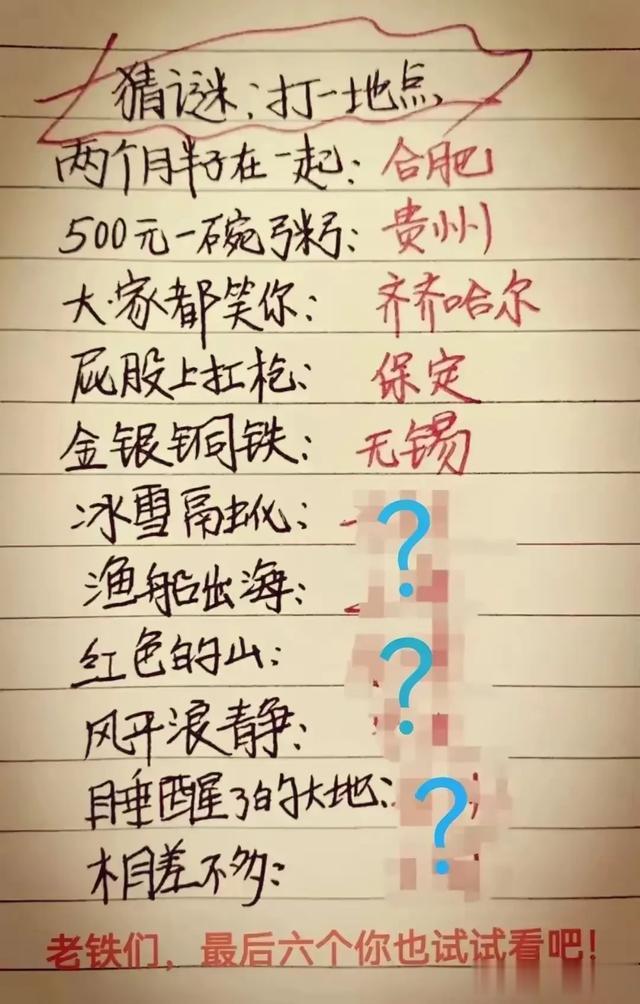 猜谜：打一地点
两个胖子在一起：合肥
500元一碗粥：贵州
大家都笑你：齐齐哈尔
屁股上扛枪：保定
金银铜铁：无锡
冰雪融化：？
渔船出海：
红色的山：？
风平浪静：
睡醒了的大地：？
相差不多：
老铁们，最后六个你也试试看吧！